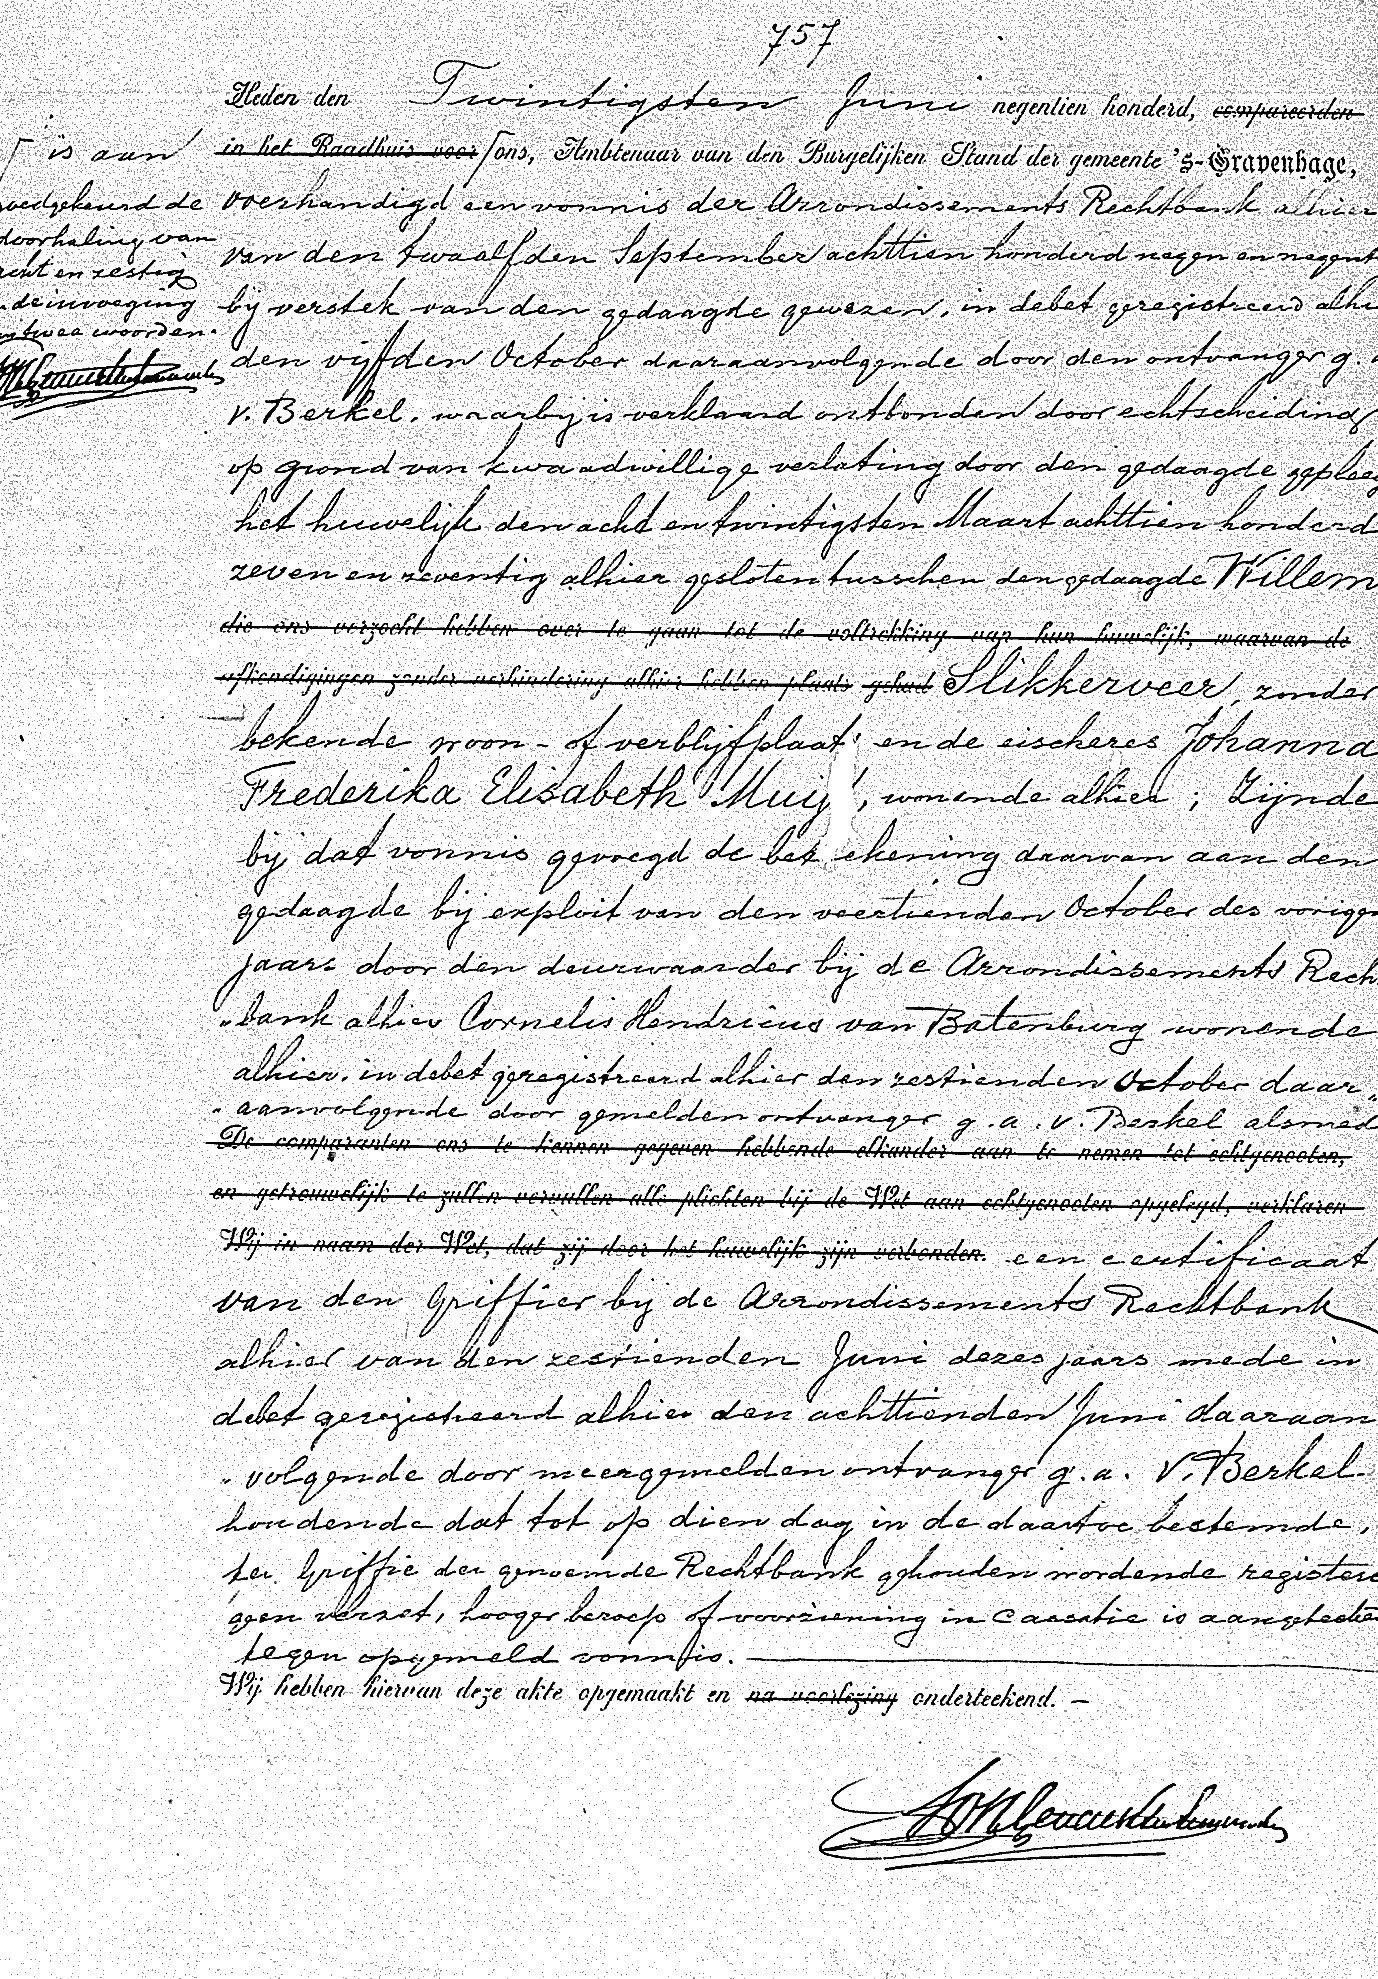 757
Heden den Twintigsten Juni negentien honderd, compareerden
in het Raadhuis voor ons, Ambtenaar van den Burgelijken Stand der gemeente 's-Gravenhage,
overhandigd een vonnis der Arrondissements Rechtbank alhier
van den twaalfden September achttien honderd negen en negent
bij verstek van den gedaagde gewezen, in debet geregistreerd alhi
den vijfden October daaraanvolgende door den ontvanger g.
v. Berkel, waarbij is verklaard ontbonden door echtscheiding
op grond van kwaadwillige verlating door den gedaagde gepleeg
het huwelijk den acht en twintigsten Maart achttien honderd
zeven en zeventig alhier gesloten tusschen den gedaagde Willem
die ons verzocht hebben over te gaan tot de voltrekking van hun huwelijk, waarvan de
afkondigingen zonder verhindering alhier hebben plaats gehad Slikkerveer, zonder
bekende woon- of verblijfplaat en de eischeres Johanna
Frederika Elisabeth Muij, wonende alhier; Zijnde
bij dat vonnis gevoegd de bet ekening daarvan aan den
gedaagde bij exploit van den veertienden October des vorigen
jaars door den deurwaarder bij de Arrondissements Rech
"bank alhier Cornelis Hendricus van Batenburg wonende
alhier, in debet geregistreerd alhier den zestienden October daar"
"aanvolgende door gemelden ontvanger g.a. v. Berkel alsmed
De comparanten ons te kennen gegeven hebbende elkander aan te nemen tot echtgenooten,
en getrouwelijk te zullen vervullen alle plichten bij de Wet aan echtgenooten opgelegd, verklaren
Wij in naam der Wet, dat zij door het huwelijk zijn verbonden. een certificaat
van den Griffier bij de Arrondissements Rechtbank
alhier van den zestienden Juni dezes jaars mede in
debet geregistreerd alhier den achttienden Juni daaraan
"volgende door meergemelden ontvanger g.a. v. Berkel
houdende dat tot op dien dag in de daartoe bestemde,
ter Griffie der genoemde Rechtbank gehouden wordende registers
geen verzet, hooger beroep of voorziening in cassatie is aangeteeken
tegen opgemeld vonnis.
Wij hebben hiervan deze akte opgemaakt en na voorlezing onderteekend. —
is aan
oedgekeurd de
doorhaling van
acht en zestig
de invoeging
twee woorden.